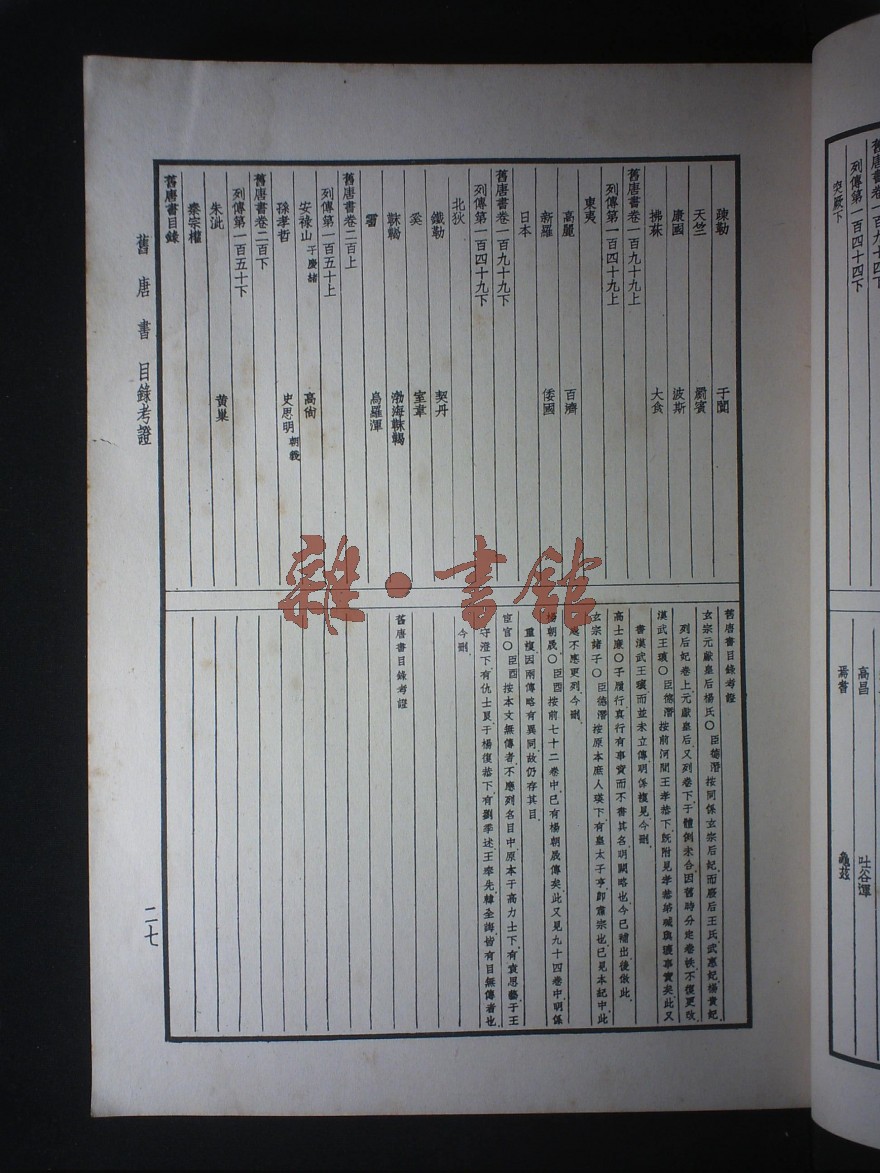 突厥下
列傳第一百四十四下
高昌
吐谷渾
焉耆
龜茲
疎勒
于闐
天竺
罽賓
康國
波斯
拂菻
大食
舊唐書卷一百九十九上
列傳第一百四十九上
東夷
高麗
百濟
新羅
倭國
日本
舊唐書卷一百九十九下
列傳第一百四十九下
北狄
鐵勒
契丹
奚
室韋
靺鞨
渤海靺鞨
霫
烏羅渾
舊唐書卷二百上
列傳第一百五十上
安祿山 子慶緒
高尚
孫孝哲
史思明 朝義
舊唐書卷二百下
列傳第一百五十下
朱泚
黃巢
秦宗權
舊唐書目錄
舊唐書目錄考證
玄宗元獻皇后楊氏〇臣德潛按同係玄宗后妃而廢后王氏武惠妃楊貴妃
列后妃卷上元獻皇后又列卷下于體例未合因舊時分定卷帙不復更改
漢武王瓌〇臣德潛按前河間王孝恭下既附見孝恭弟瑊與瓌事實矣此又
書漢武王瓌而並未立傳明係複見今刪
高士廉〇子履行真行有事實而不書其名明闕略也今已補出後倣此
玄宗諸子〇臣德潛按原本庶人瑛下有皇太子亨卽肅宗也已見本記中此
處不應更列今刪
楊朝晟〇臣酉按前七十二卷中已有楊朝晟傳矣此又見九十四卷中明係
重複因兩傳略有異同故仍存其目
宦官〇臣酉按本文無傳者不應列名目中原本于高力士下有袁思藝于王
守澄下有仇士良于楊復恭下有劉季述王奉先韓全誨皆有目無傳者也
今刪
舊唐書目錄考證
舊唐書 目錄考證
二七
雜·書館